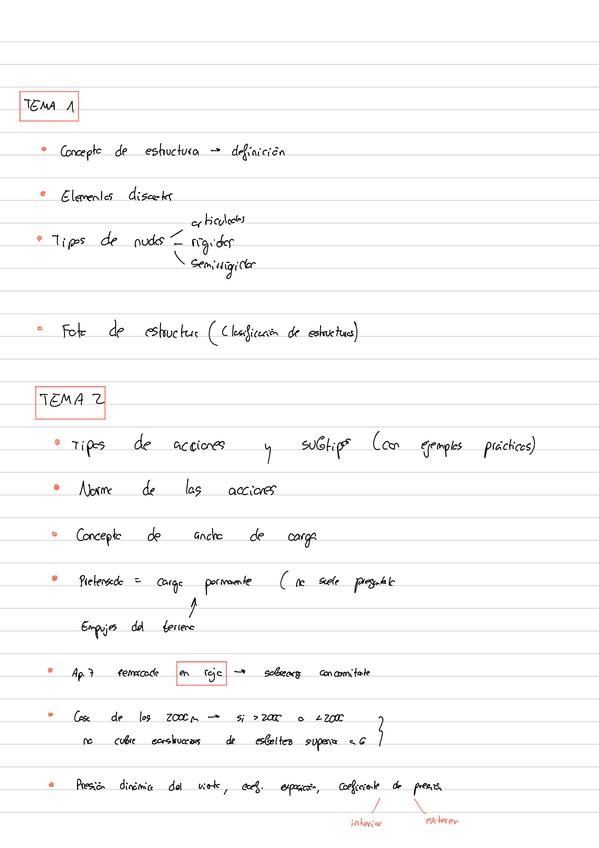 TEMA 1
• Concepto de estructura → definición
• Elementos discretos
• Tipos de nudos
articulados
rígidos
semirrígidos
• Foto de estructura (Clasificación de estructuras)
TEMA 2
• Tipos de acciones y subtipos (con ejemplos prácticos)
• Norma de las acciones
• Concepto de ancho de carga
• Pretensado = carga permanente (no suele
Empujes del terreno
• Ap. 7 remarcado en rojo → sobrecarga concomitante
• Caso de los 2000 m → si >2000 o <2000
no cubre construcciones de esbeltez superior a 6
• Presión dinámica del viento, coef. exposición, coeficiente de presión
interior exterior